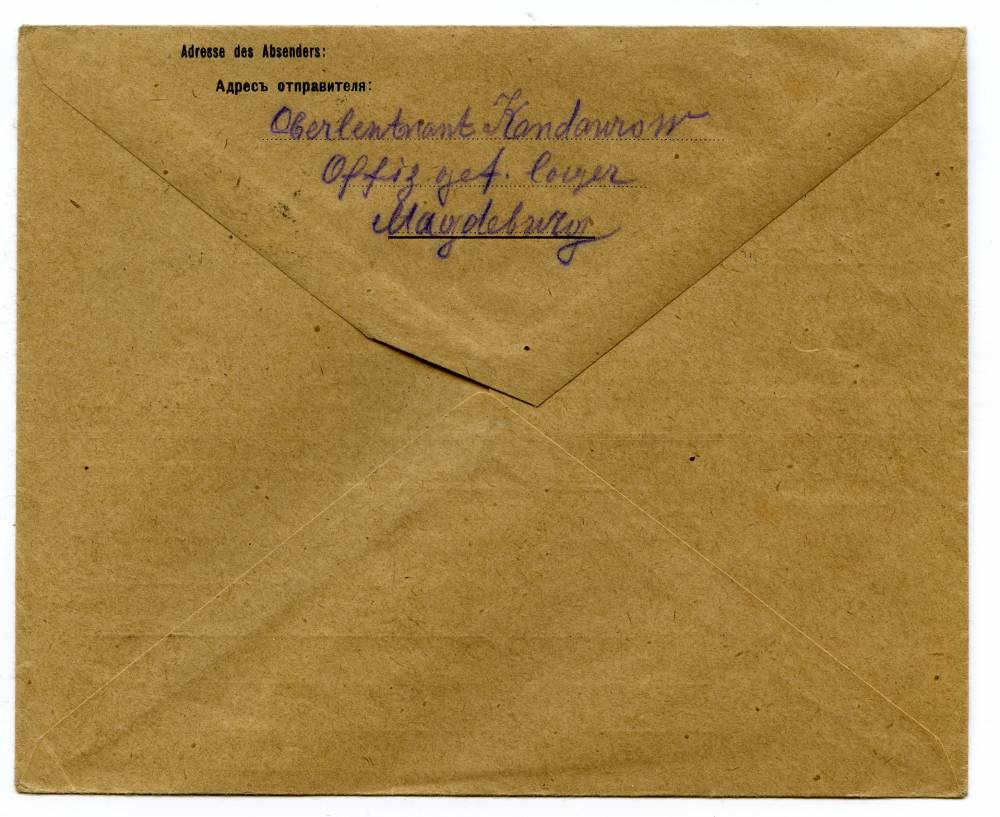 Adresse des Absenders:
Адресъ отправителя:
Oberlentnant Kandaurow
Offiz gef. lager
Magdeburg